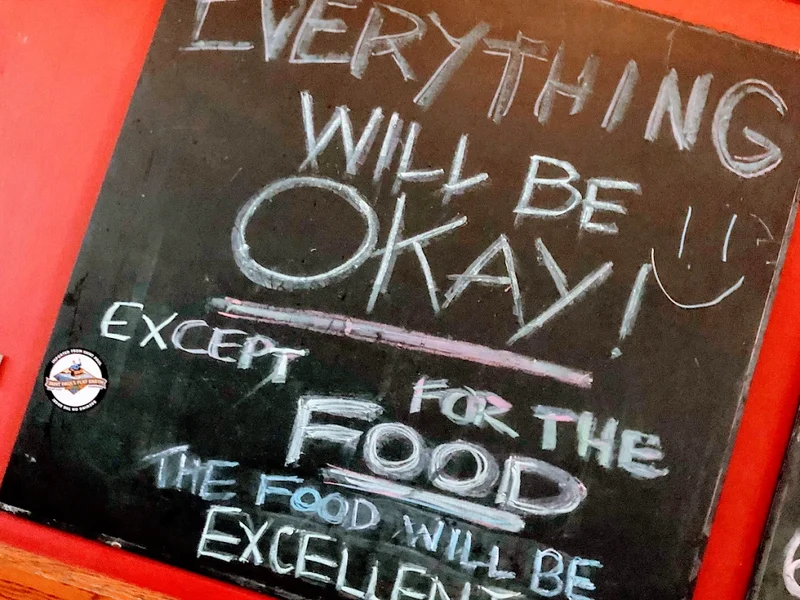 EVERYTHING
WILL BE
OKAY!
EXCEPT
FOR THE
FOOD
THE FOOD WILL BE
EXCELLENT